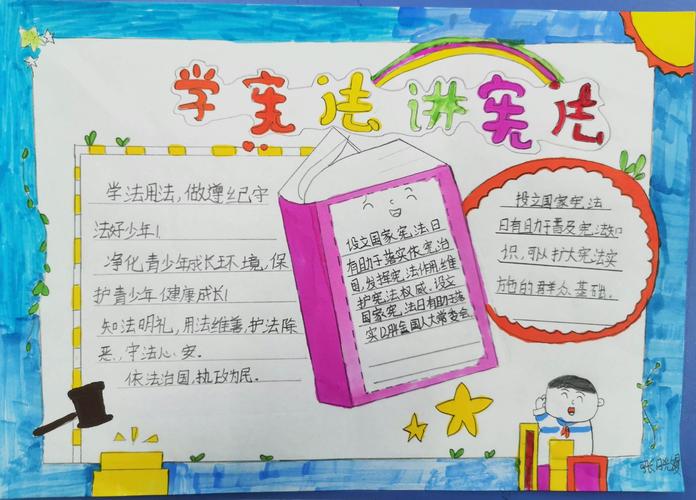 学宪法 讲宪法
学法用法,做遵纪守
法好少年!
净化青少年成长环境,保
护青少年健康成长!
知法明礼,用法维善,护法除
恶,守法心安.
依法治国,执政为民.
设立国家宪法日
有助于落实依宪治
国,发挥宪法作用,维
护宪法权威.设立
国家宪法日有助于落
实以 国人大常委会
设立国家宪法
日有助于普及宪法知
识,可以扩大宪法实
施的群众基础.